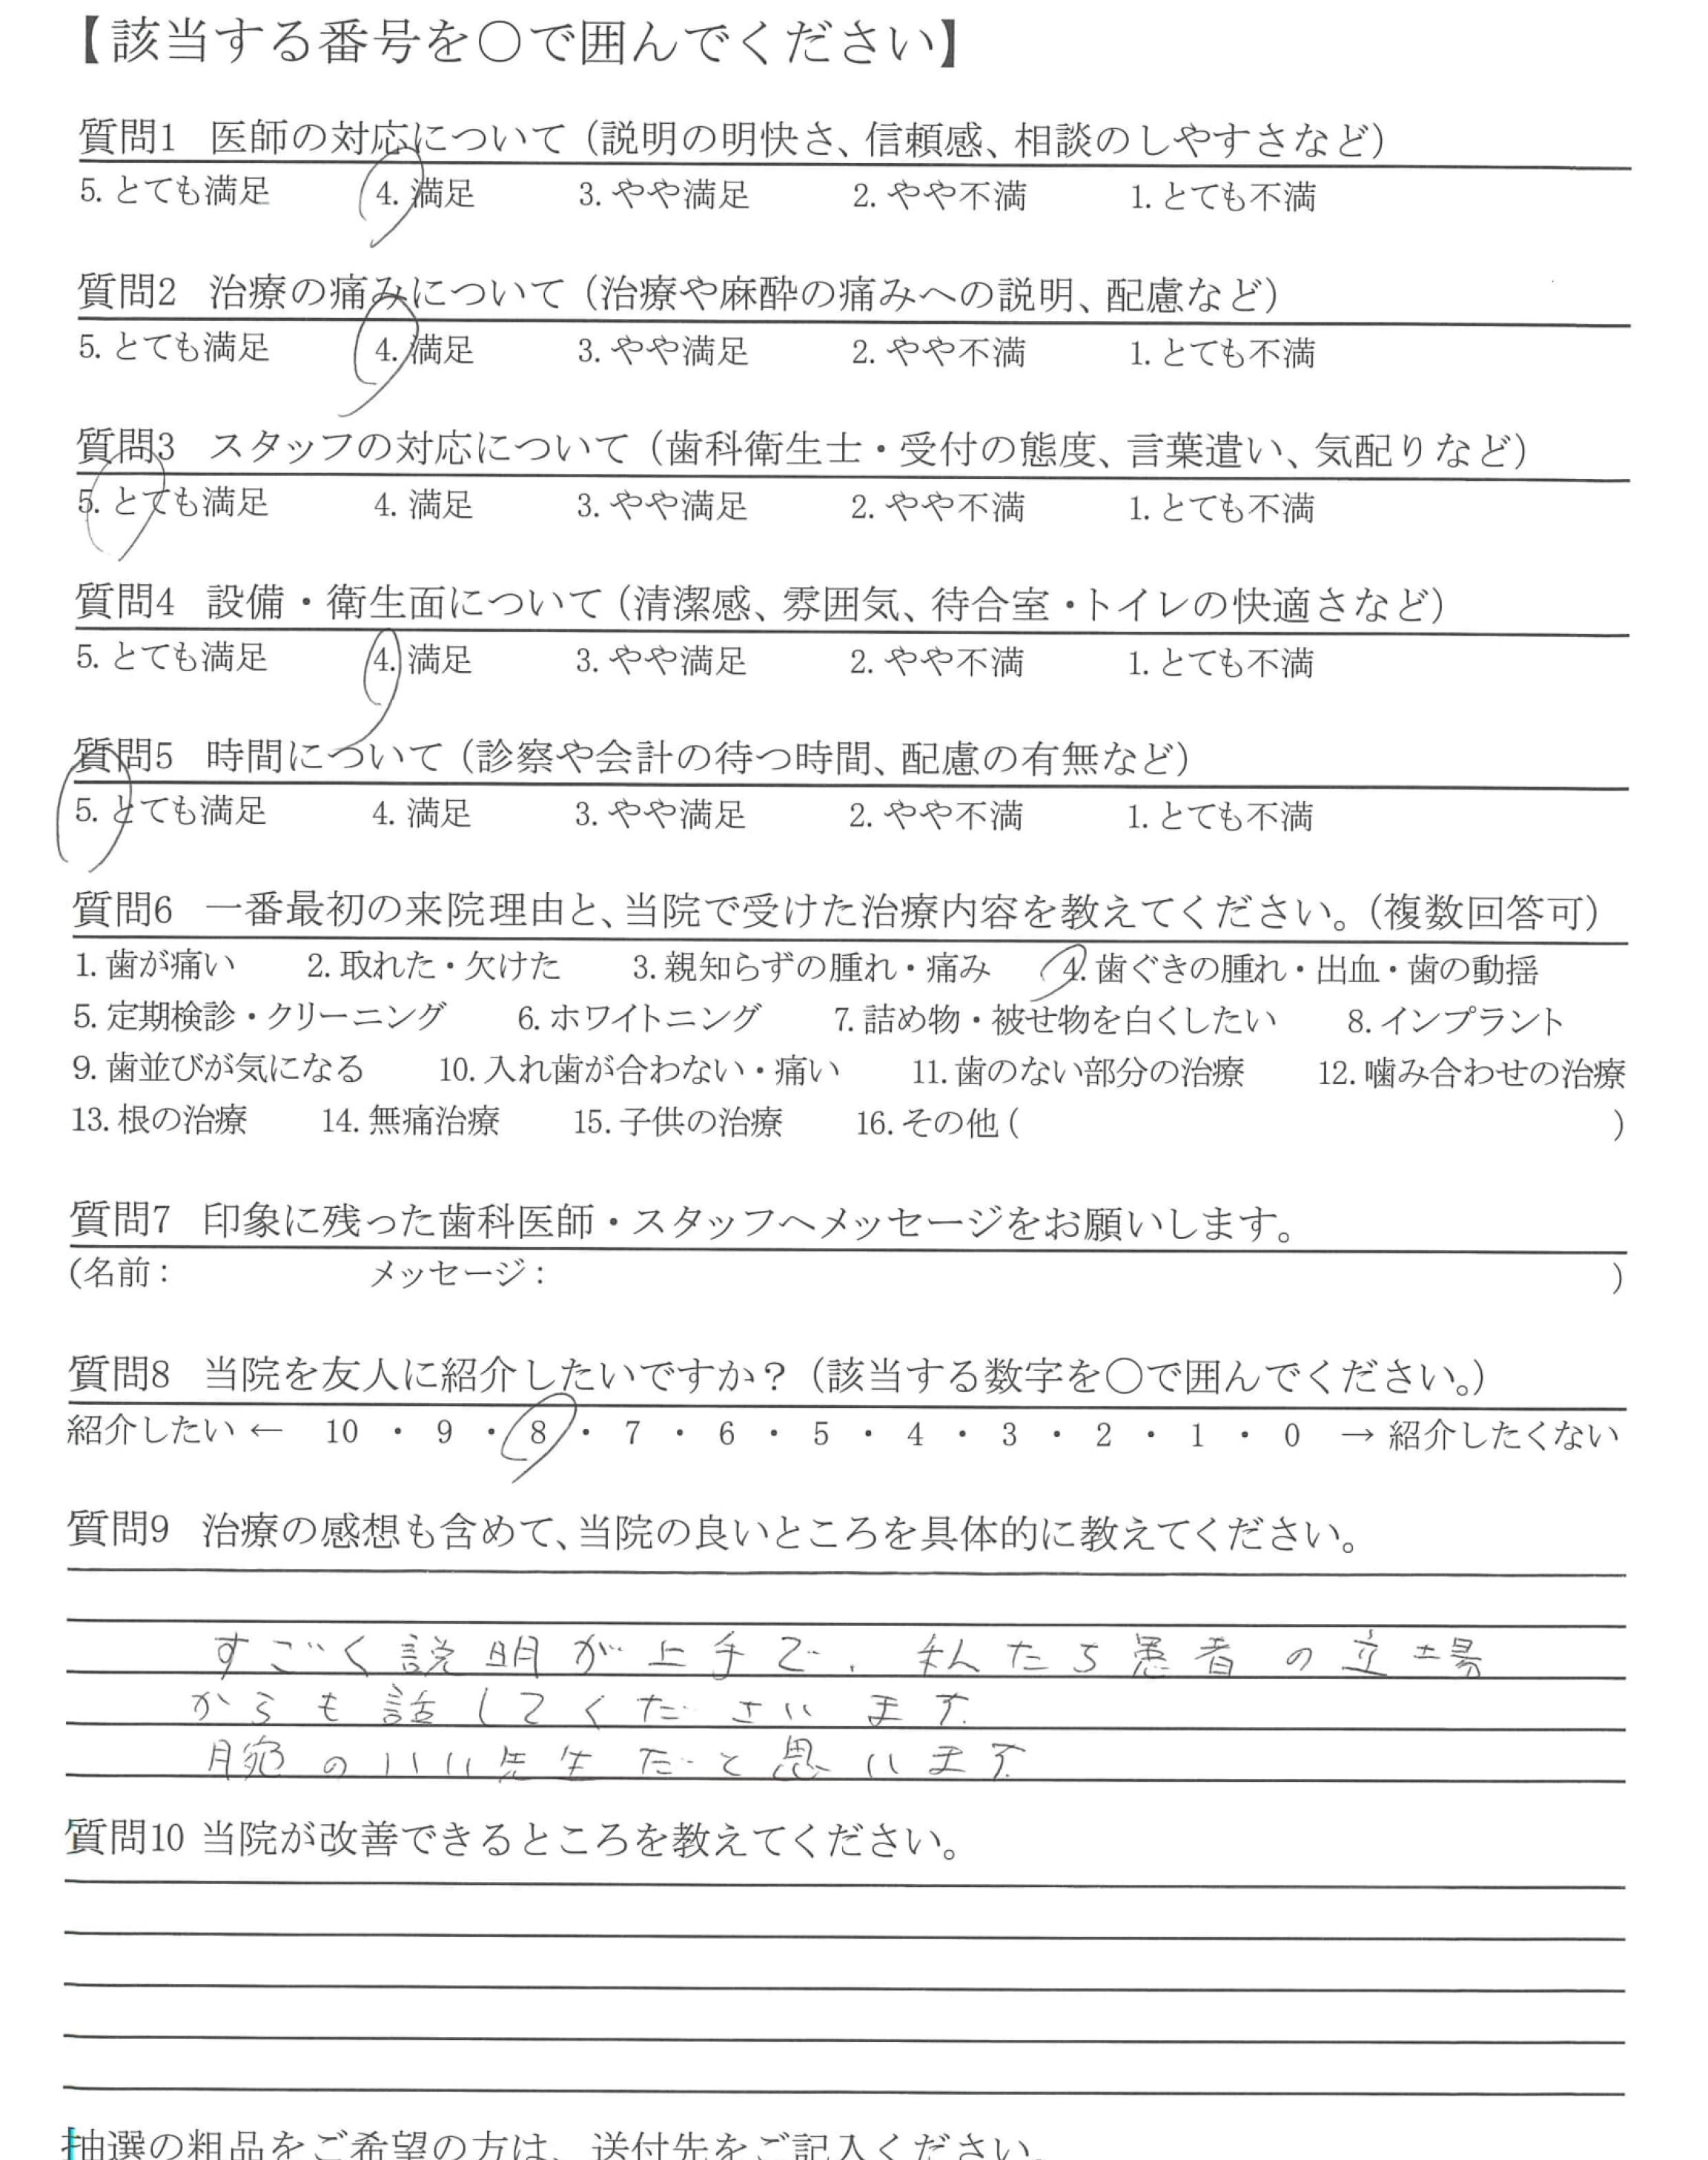 【該当する番号を○で囲んでください】
質問1 医師の対応について（説明の明快さ、信頼感、相談のしやすさなど）
5. とても満足 4. 満足 3. やや満足 2. やや不満 1. とても不満
質問2 治療の痛みについて（治療や麻酔の痛みへの説明、配慮など）
5. とても満足 4. 満足 3. やや満足 2. やや不満 1. とても不満
質問3 スタッフの対応について（歯科衛生士・受付の態度、言葉遣い、気配りなど）
5. とても満足 4. 満足 3. やや満足 2. やや不満 1. とても不満
質問4 設備・衛生面について（清潔感、雰囲気、待合室・トイレの快適さなど）
5. とても満足 4. 満足 3. やや満足 2. やや不満 1. とても不満
質問5 時間について（診察や会計の待つ時間、配慮の有無など）
5. とても満足 4. 満足 3. やや満足 2. やや不満 1. とても不満
質問6 一番最初の来院理由と、当院で受けた治療内容を教えてください。（複数回答可）
1. 歯が痛い 2. 取れた・欠けた 3. 親知らずの腫れ・痛み 4. 歯ぐきの腫れ・出血・歯の動揺
5. 定期検診・クリーニング 6. ホワイトニング 7. 詰め物・被せ物を白くしたい 8. インプラント
9. 歯並びが気になる 10. 入れ歯が合わない・痛い 11. 歯のない部分の治療 12. 噛み合わせの治療
13. 根の治療 14. 無痛治療 15. 子供の治療 16. その他 ( )
質問7 印象に残った歯科医師・スタッフへメッセージをお願いします。
(名前： メッセージ： )
質問8 当院を友人に紹介したいですか？（該当する数字を○で囲んでください。）
紹介したい ← 10 ・ 9 ・ 8 ・ 7 ・ 6 ・ 5 ・ 4 ・ 3 ・ 2 ・ 1 ・ 0 → 紹介したくない
質問9 治療の感想も含めて、当院の良いところを具体的に教えてください。
すごく説明が上手で、私たち患者の立場
からも話してくださいます
腕のいい先生だと思います
質問10 当院が改善できるところを教えてください。
抽選の粗品をご希望の方は、送付先をご記入ください。